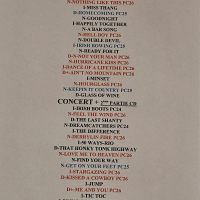 N-NOTHING LIKE THIS PC26
I-MISS THANG
D-HOMECOMING PC25
N-GOODNIGHT
I-HAPPILY TOGETHER
N-A BAR SONG
N-HELL BOY PC26
N-DOUBLE DEVIL
I-IRISH ROWING PC25
N-READY FOR IT
D-S-NOT YOUR MAN PC26
N-HURRICANE KISS PC26
I-DANCE OF A LIFETIME PC26
D+-AIN'T NO MOUNTAIN PC26
I-MINSET
N-HOURGLASS PC26
N-KEEPIN IT COUNTRY PC25
D-GLASS OF WINE
CONCERT + 2ème PARTIE CD
I-IRISH BOOTS PC24
N-PEEL THE WIND PC26
D-THE LAST SHANTY
N-DREAMCATCHERS PC24
I-THE DIFFERENCE
N-DEBRYLIS FIRE PC26
I-90 WAYS-RIO
D-THAT HONKY TONK HIGHWAY
N-LOVE ME TO HEAVEN PC26
N-FIND YOUR WAY
N-GET ON YOUR FEET PC25
I-STARGAZING PC26
D-KISSED A COWBOY PC26
I-JUMP
D+-ME AND YOU PC26
I-TIC TOC